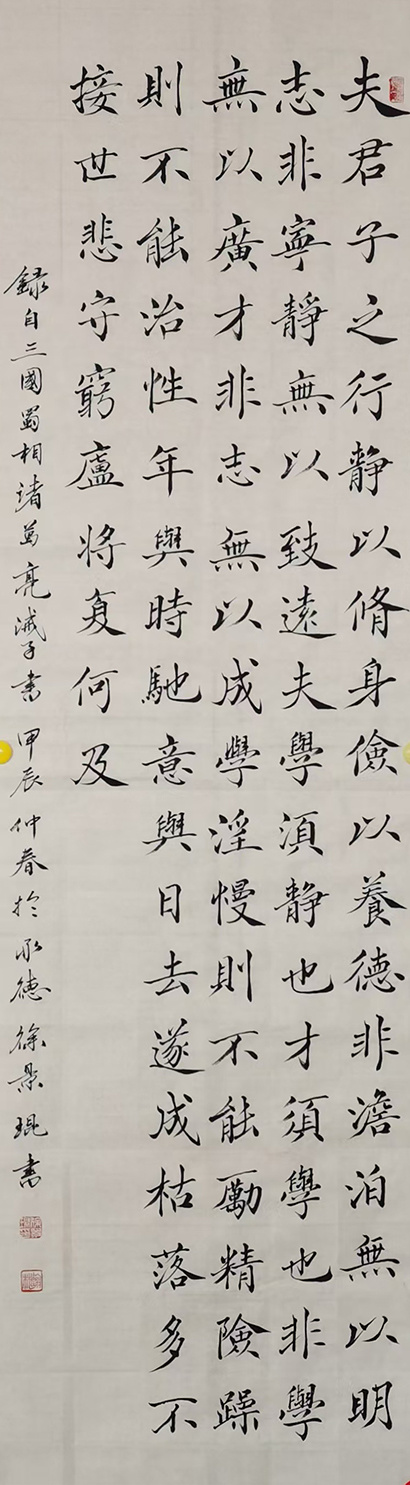 夫君子之行靜以脩身儉以養德非澹泊無以明
志非寧靜無以致遠夫學湏静也才須學也非學
無以廣才非志無以成學淫慢則不能勵精險躁
則不能治性年與時馳意與日去遂成枯落多不
接世悲守窮廬將复何及
録自三國蜀相諸葛亮诫子書 甲辰仲春於承德徐景琨書